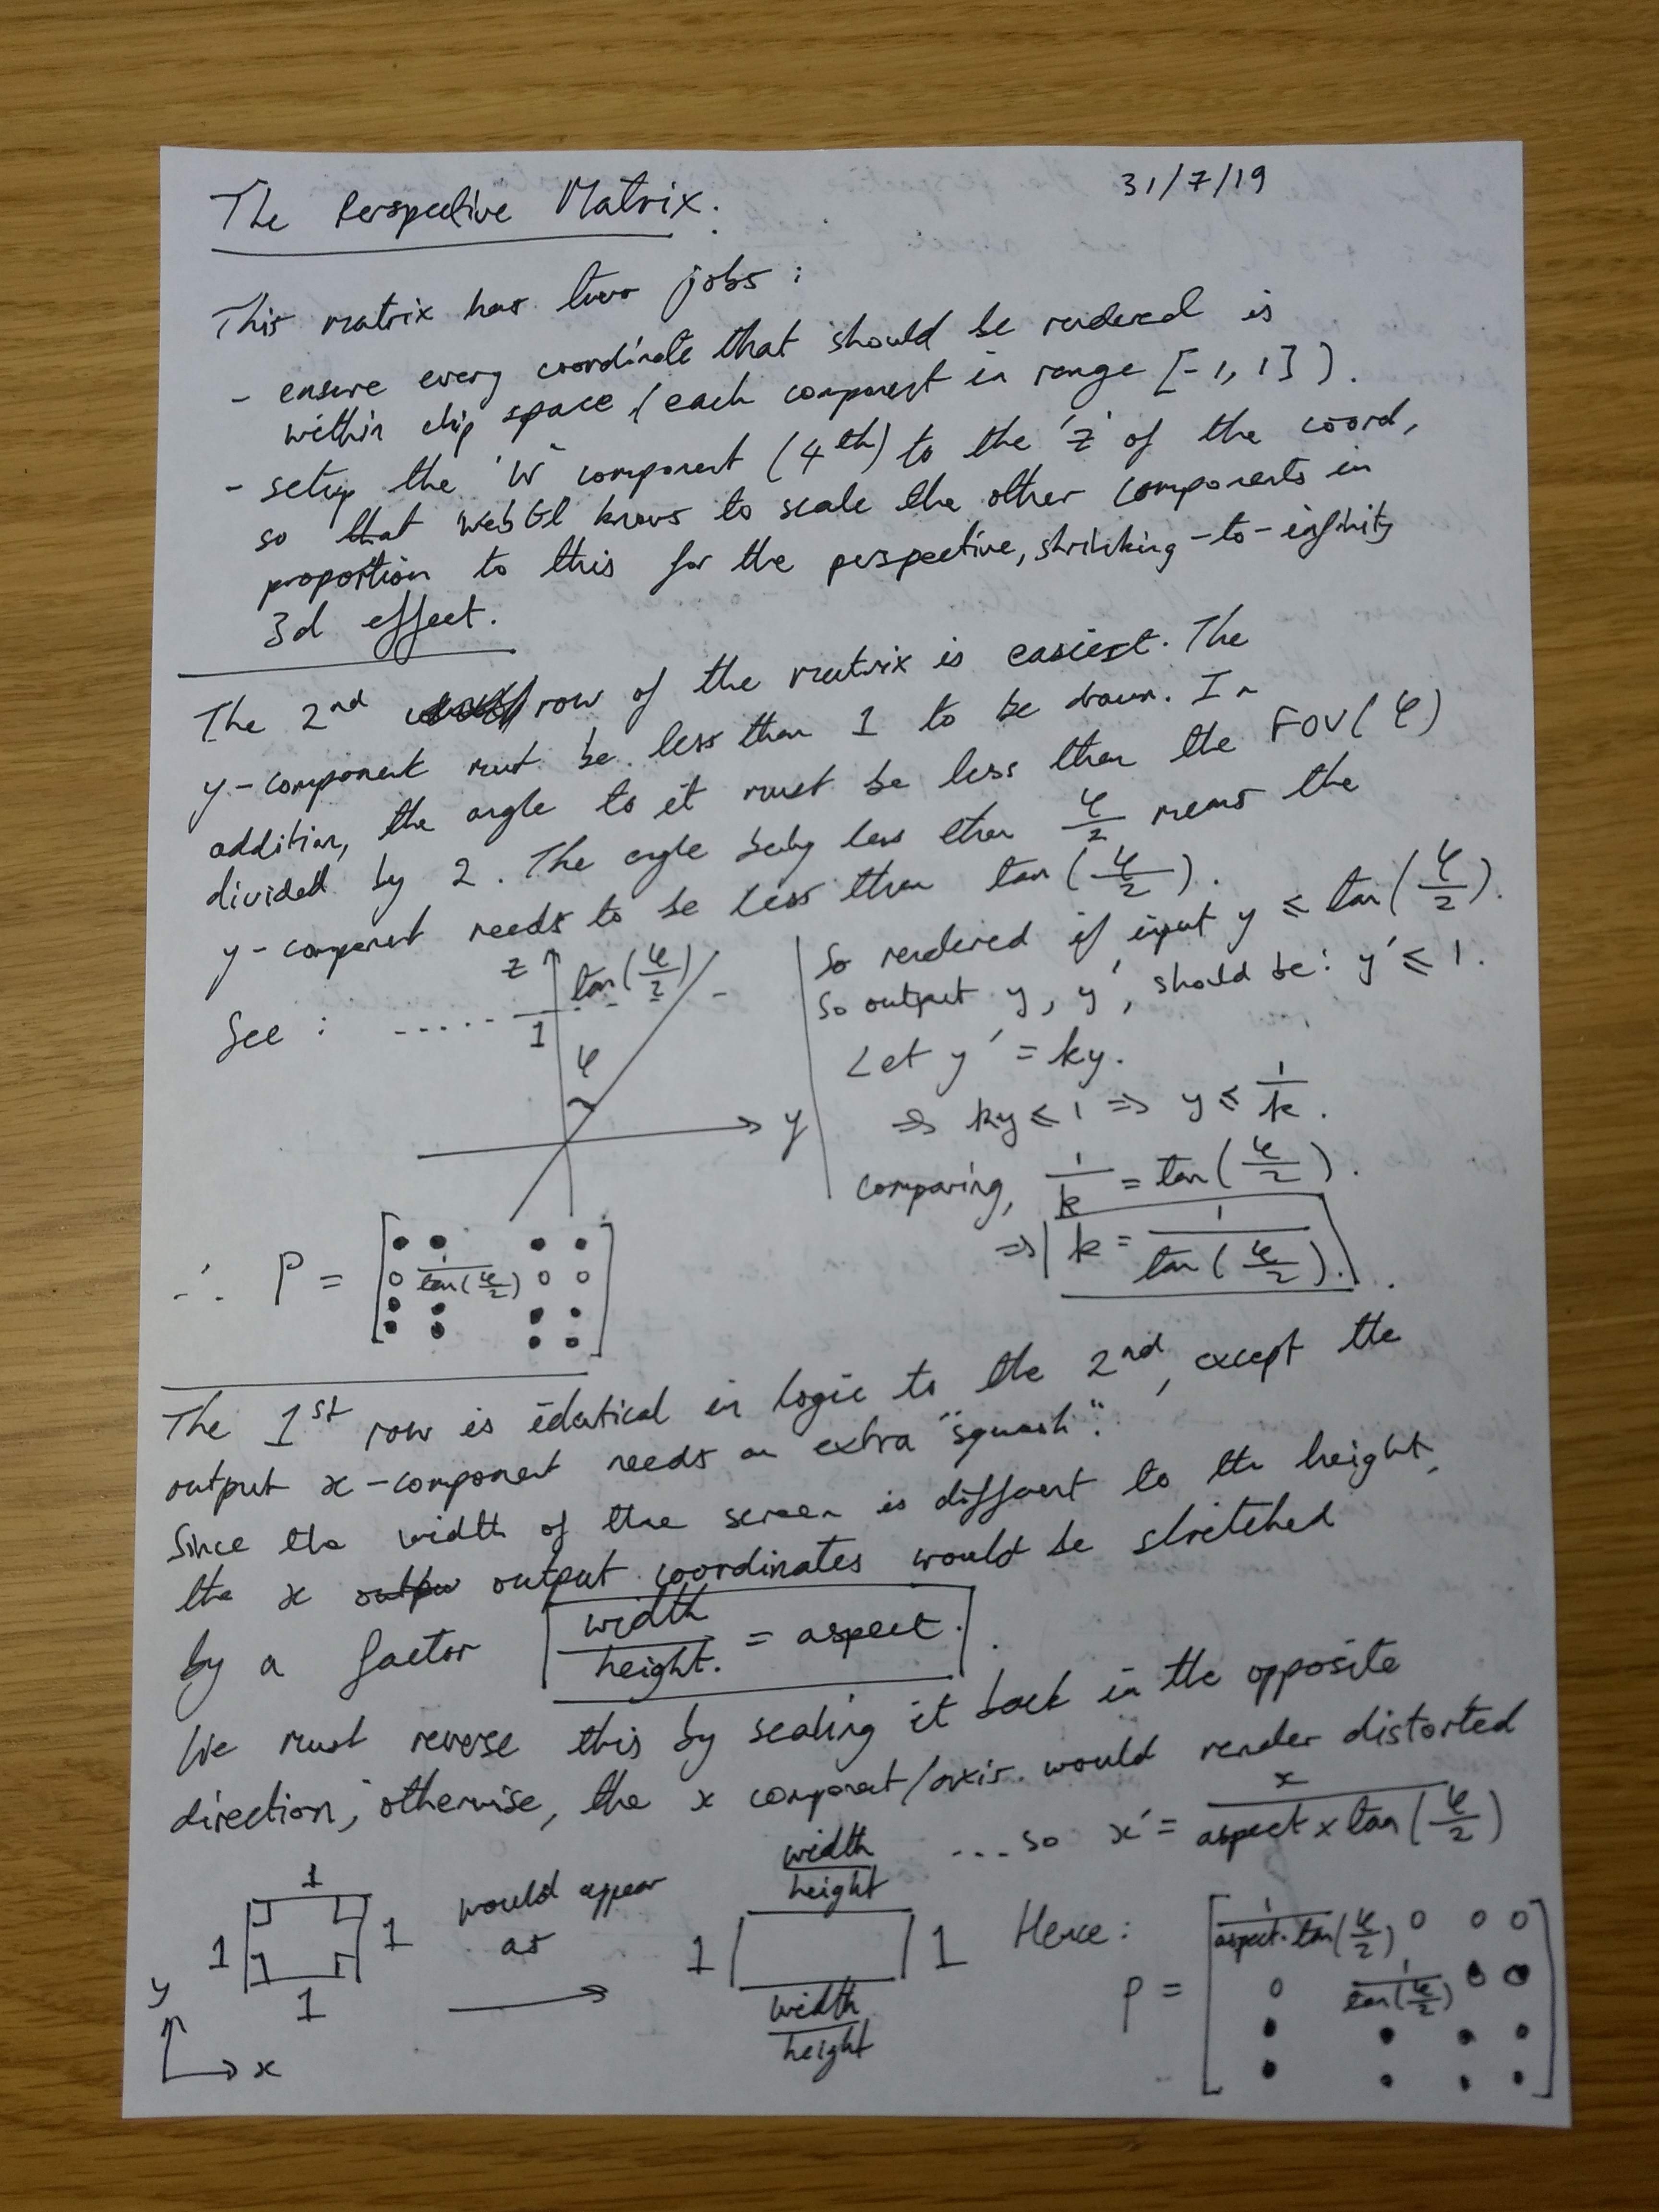 The Perspective Matrix.
31/7/19
This matrix has two jobs :
- ensure every coordinate that should be rendered is
within clip space (each component in range [-1, 1]).
- setup the 'W' component (4th) to the 'z' of the coord,
so that WebGl knows to scale the other components in
proportion to this for the perspective, shrinking-to-infinity
3d effect.
The 2nd row of the matrix is easiest. The
y-component must be less than 1 to be drawn. In
addition, the angle to it must be less than the FOV(φ)
divided by 2. The angle being less than φ/2 means the
y-component needs to be less than tan(φ/2).
See : ..... z tan(φ/2)
1
φ
y
So rendered if input y ⩽ tan(φ/2).
So output y, y', should be: y' ⩽ 1.
Let y' = ky.
⇒ ky ⩽ 1 ⇒ y ⩽ 1/k.
comparing, 1/k = tan(φ/2).
⇒ k = 1/tan(φ/2).
∴ P = [• • • •
0 1/tan(φ/2) 0 0
• • • •
• • • •]
The 1st row is identical in logic to the 2nd, except the
output x-component needs an extra "squash".
Since the width of the screen is different to the height,
the x output coordinates would be stretched
by a factor width/height. = aspect.
We must reverse this by scaling it back in the opposite
direction; otherwise, the x component/axis would render distorted
....so x' = x/aspect × tan(φ/2)
1
1 1
1
y
x
would appear
as
width/height
1 1
width/height
Hence :
P = [1/aspect·tan(φ/2) 0 0 0
0 1/tan(φ/2) 0 0
• • • •
• • • •]